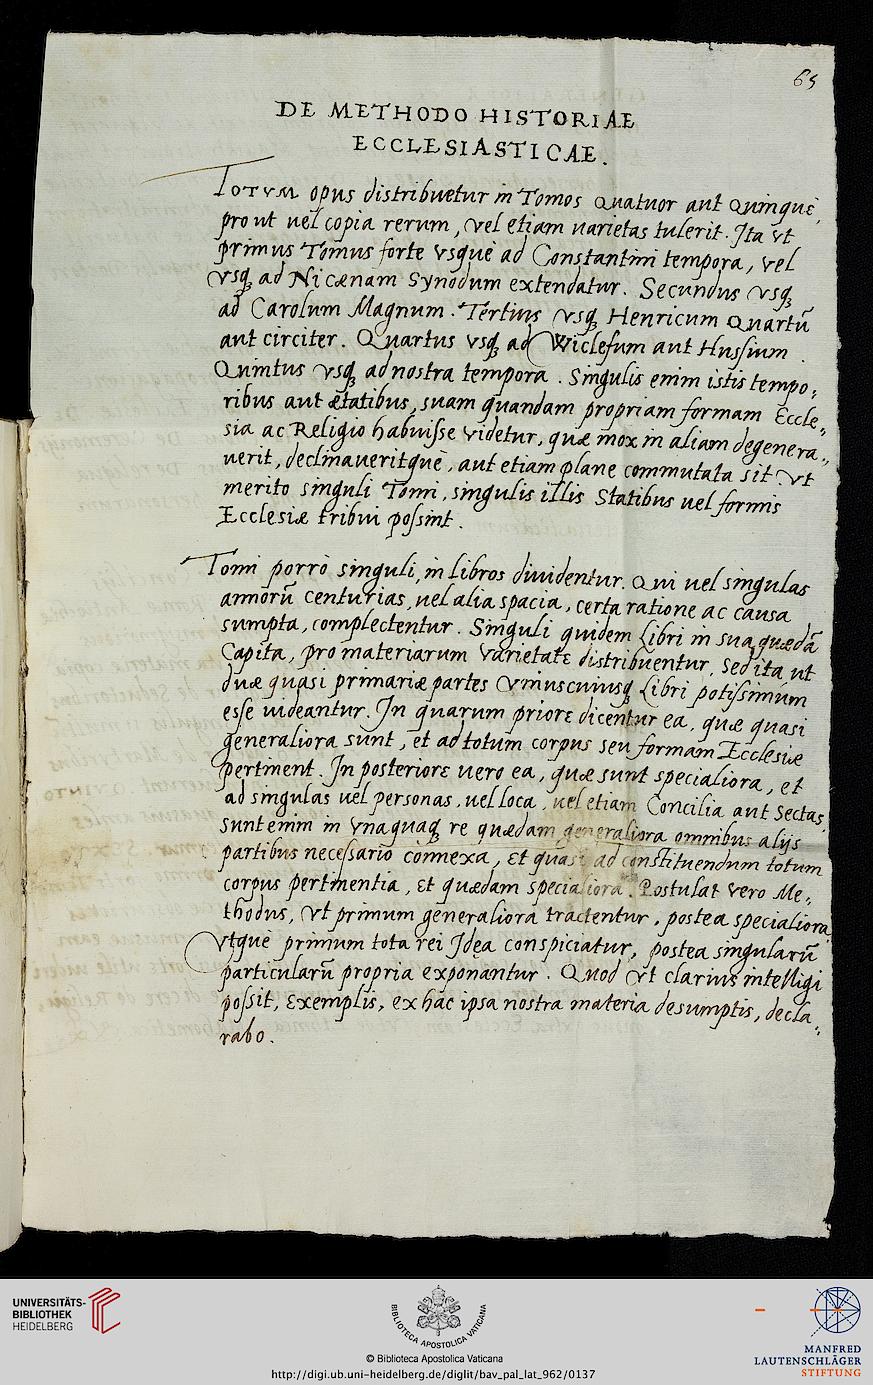 65
DE METHODO HISTORIAE
ECCLESIASTICAE.
TOTVM opus distribuetur in Tomos Quatuor aut Quinque,
prout uel copia rerum, vel etiam uarietas tulerit. Ita vt
primus Tomus forte vsque ad Constantini tempora, vel
vsqꝫ ad Nicænam Synodum extendatur. Secundus vsqꝫ
ad Carolum Magnum. Tertius vsqꝫ Henricum Quartū
aut circiter. Quartus vsqꝫ ad Wiclefum aut Hussium.
Quintus vsqꝫ ad nostra tempora. Singulis enim istis tempo⸗
ribus aut ætatibus, suam quandam propriam formam Eccle⸗
sia ac Religio habuisse videtur, quæ mox in aliam degenera⸗
uerit, declinaueritque, aut etiam plane commutata sit. Vt
merito singuli Tomi, singulis illis Statibus uel formis
Ecclesiæ tribui possint.
Tomi porrò singuli, in libros diuidentur. Qui uel singulas
annorū centurias, uel alia spacia, certa ratione ac causa
sumpta, complectentur. Singuli quidem Libri in sua quædā
Capita, pro materiarum varietate distribuentur, Sed ita ut
duæ quasi primariæ partes Vniuscuiusqꝫ Libri potissimum
esse uideantur. In quarum priore dicentur ea, quæ quasi
generaliora sunt, et ad totum corpus seu formam Ecclesiæ
pertinent. In posteriore uero ea, quæ sunt specialiora, et
ad singulas uel personas, uel loca, uel etiam Concilia aut Sectas.
Sunt enim in vnaquaqꝫ re quædam generaliora omnibus alijs
partibus necessario connexa, et quasi ad constituendum totum
corpus pertinentia, et quædam specialiora. Postulat vero Me⸗
thodus, vt primum generaliora tractentur, postea specialiora
vtque primum tota rei Idea conspiciatur, postea singularū
particularū propria exponantur. Quod vt clarius intelligi
possit, exemplis, ex hac ipsa nostra materia desumptis, decla⸗
rabo.
UNIVERSITÄTS-
BIBLIOTHEK
HEIDELBERG
BIBLIOTECA APOSTOLICA VATICANA
© Biblioteca Apostolica Vaticana
http://digi.ub.uni-heidelberg.de/diglit/bav_pal_lat_962/0137
MANFRED
LAUTENSCHLÄGER
STIFTUNG